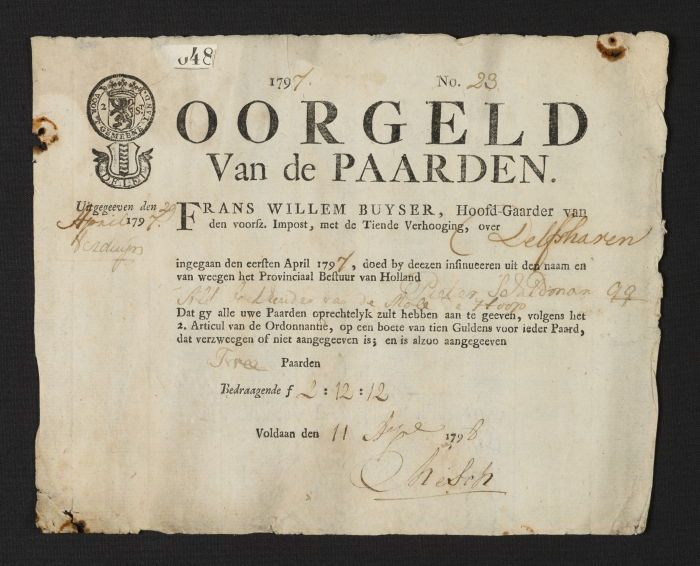 648
1797. No. 23.
VOOR 'T GEMEENE LAND
2 St.
DELFT
OORGELD
Van de PAARDEN.
Uitgegeeven den 20
April 1797.
FRANS WILLEM BUYSER, Hoofd-Gaarder van
den voorsz. Impost, met de Tiende Verhooging, over Delfshaven
ingegaan den eersten April 1797, doed by deezen insinueeren uit den naam en
van weegen het Provinciaal Bestuur van Holland
Pieter Schidman qq
van de Mole Hoop
Dat gy alle uwe Paarden oprechtelyk zult hebben aan te geeven, volgens het
2. Articul van de Ordonnantie, op een boete van tien Guldens voor ieder Paard,
dat verzweegen of niet aangegeeven is; en is alzoo aangegeeven
Twee Paarden
Bedraagende f 2:12:12
Voldaan den 11 1798